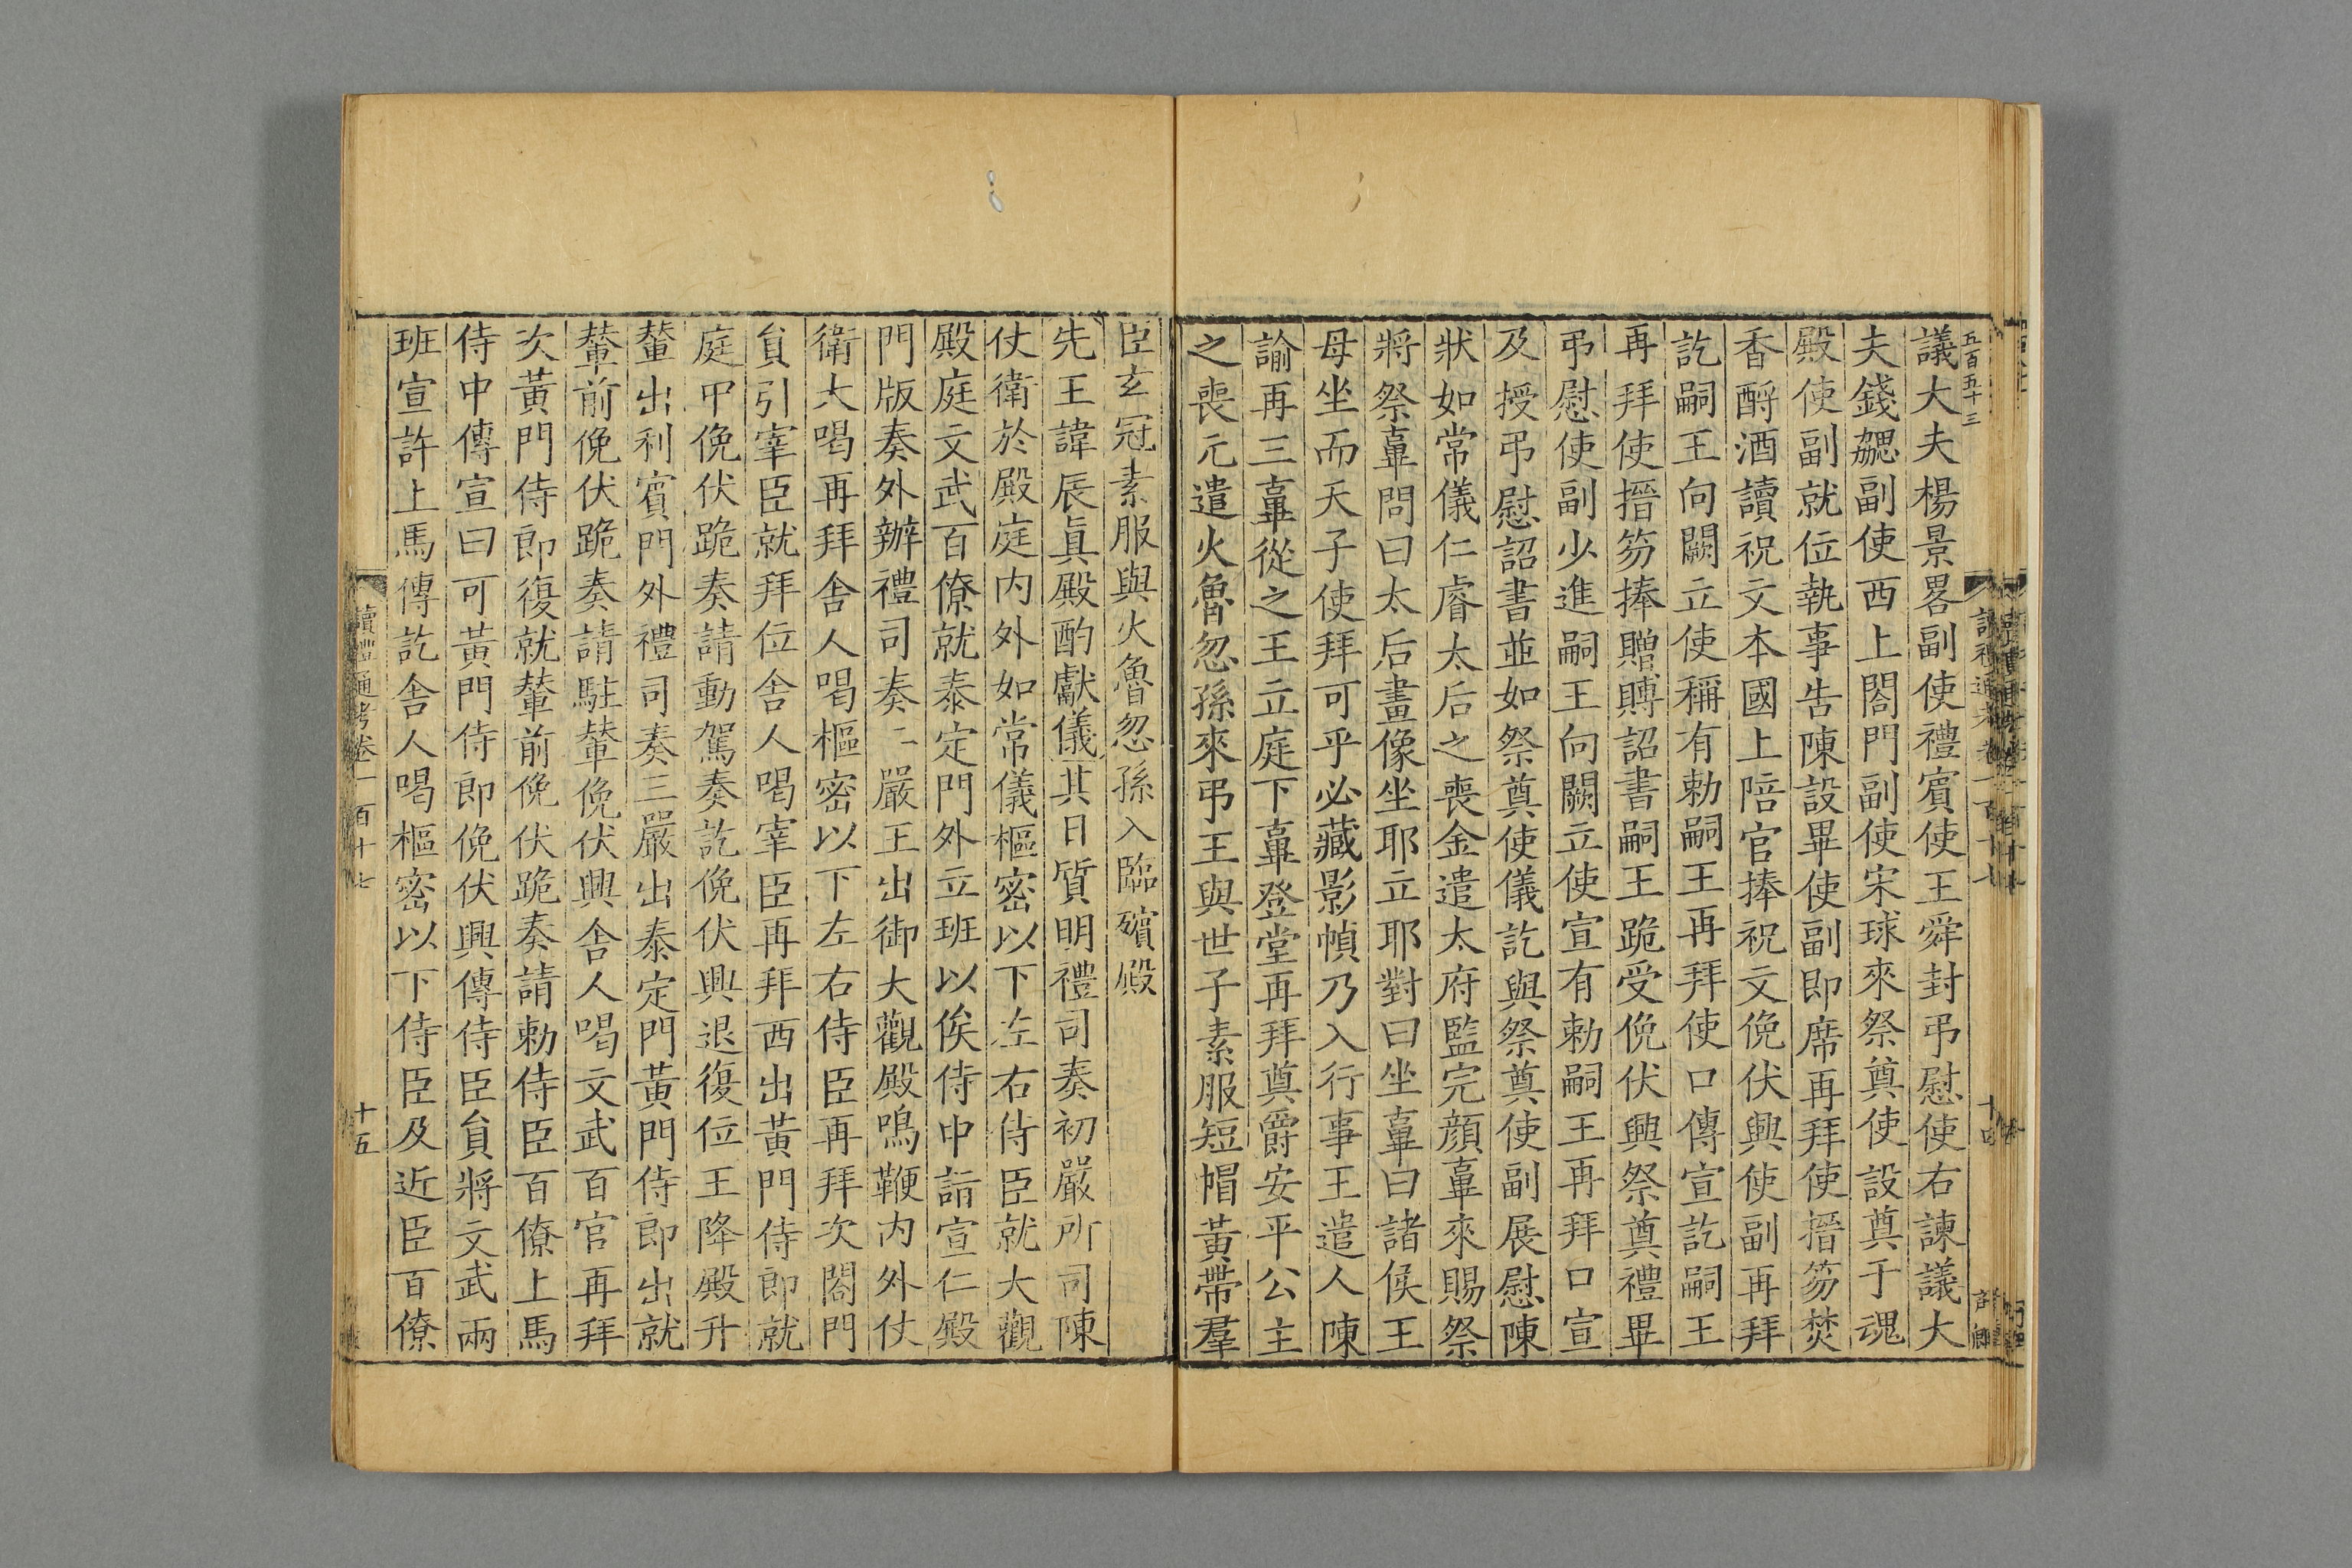 五百五十三
議大夫楊景畧副使禮賓使王舜封弔慰使右諫議大
夫錢勰副使西上閤門副使宋球來祭奠使設奠于魂
殿使副就位執事告陳設畢使副即席再拜使搢笏焚
香酹酒讀祝文本國上陪官捧祝文俛伏興使副再拜
訖嗣王向闕立使稱有勅嗣王再拜使口傳宣訖嗣王
再拜使搢笏捧贈賻詔書嗣王跪受俛伏興祭奠禮畢
弔慰使副少進嗣王向闕立使宣有勅嗣王再拜口宣
及授弔慰詔書並如祭奠使儀訖與祭奠使副展慰陳
狀如常儀仁睿太后之喪金遣太府監完顏𠌯來賜祭
將祭𠌯問曰太后畫像坐耶立耶對曰坐𠌯曰諸侯王
母坐而天子使拜可乎必藏影幀乃入行事王遣人陳
諭再三𠌯從之王立庭下𠌯登堂再拜奠爵安平公主
之喪元遣火魯忽孫來弔王與世子素服短帽黃帶羣
臣玄冠素服與火魯忽孫入臨殯殿
先王諱辰真殿酌獻儀其日質明禮司奏初嚴所司陳
仗衛於殿庭内外如常儀樞密以下左右侍臣就大觀
殿庭文武百僚就泰定門外立班以俟侍中詣宣仁殿
門版奏外辦禮司奏二嚴王出御大觀殿鳴鞭内外仗
衛大喝再拜舍人喝樞密以下左右侍臣再拜次閤門
貟引宰臣就拜位舍人喝宰臣再拜西出黃門侍郎就
庭甲俛伏跪奏請動駕奏訖俛伏興退復位王降殿升
輦出利賓門外禮司奏三嚴出泰定門黃門侍郎出就
輦前俛伏跪奏請駐輦俛伏興舍人喝文武百官再拜
次黃門侍郎復就輦前俛伏跪奏請勅侍臣百僚上馬
侍中傳宣曰可黃門侍郎俛伏興傳侍臣貟將文武兩
班宣許上馬傳訖舍人喝樞密以下侍臣及近臣百僚
讀禮通考卷一百十七
十五